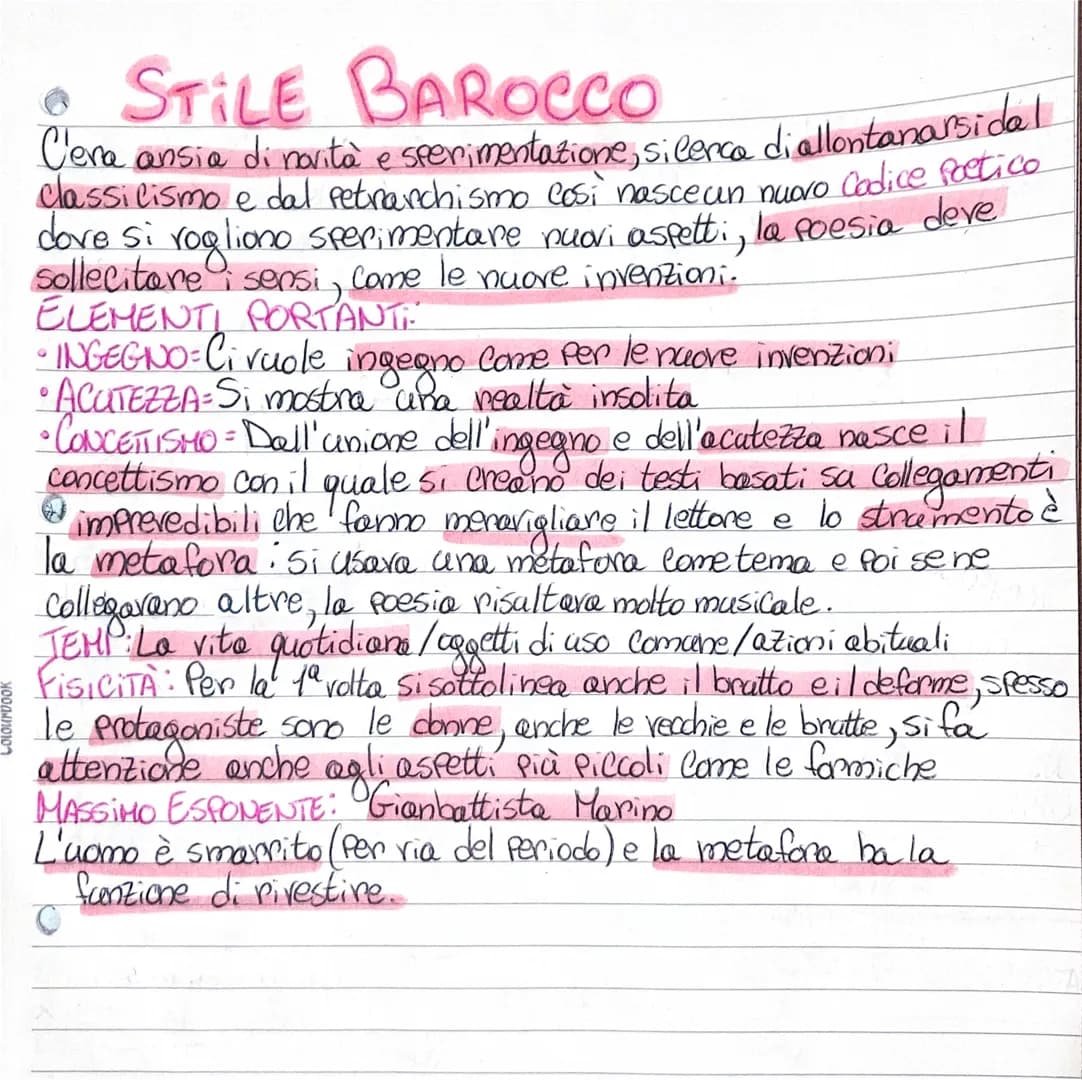 STILE BAROCCO
C'era ansia di novità e sperimentazione, si cerca di allontanarsi dal
classicismo e dal petrarchismo così nasce un nuovo codice poetico
dove si vogliono sperimentare nuovi aspetti, la poesia deve
sollecitare i sensi, come le nuove invenzioni.
ELEMENTI PORTANTI:
• INGEGNO = Ci vuole ingegno come per le nuove invenzioni
• ACUTEZZA = Si mostra una realtà insolita
• CONCETTISMO = Dall'unione dell'ingegno e dell'acutezza nasce il
concettismo con il quale si creano dei testi basati su collegamenti
imprevedibili che fanno meravigliare il lettore e lo strumento è
la metafora: si usava una metafora come tema e poi se ne
collegavano altre, la poesia risultava molto musicale.
TEMI: La vita quotidiana/oggetti di uso comune/azioni abituali
FISICITÀ: Per la 1ª volta si sottolinea anche il brutto e il deforme, spesso
le protagoniste sono le donne, anche le vecchie e le brutte, si fa
attenzione anche agli aspetti più piccoli come le formiche
MASSIMO ESPONENTE: Gianbattista Marino
L'uomo è smarrito (per via del periodo) e la metafora ha la
funzione di rivestire.
COLOURBOOK